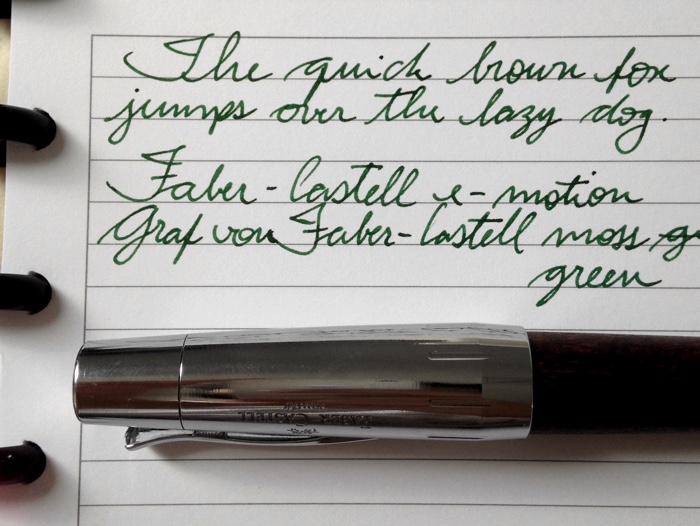 The quick brown fox
jumps over the lazy dog.
Faber-Castell e-motion
Graf von Faber-Castell moss g
green
FABER-CASTELL